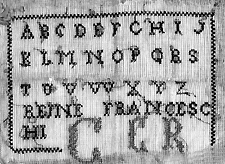 ABCDEFGHIJ
KLMNOPQRS
TUVWXYZ
REINE FRANCESC
HI C CR